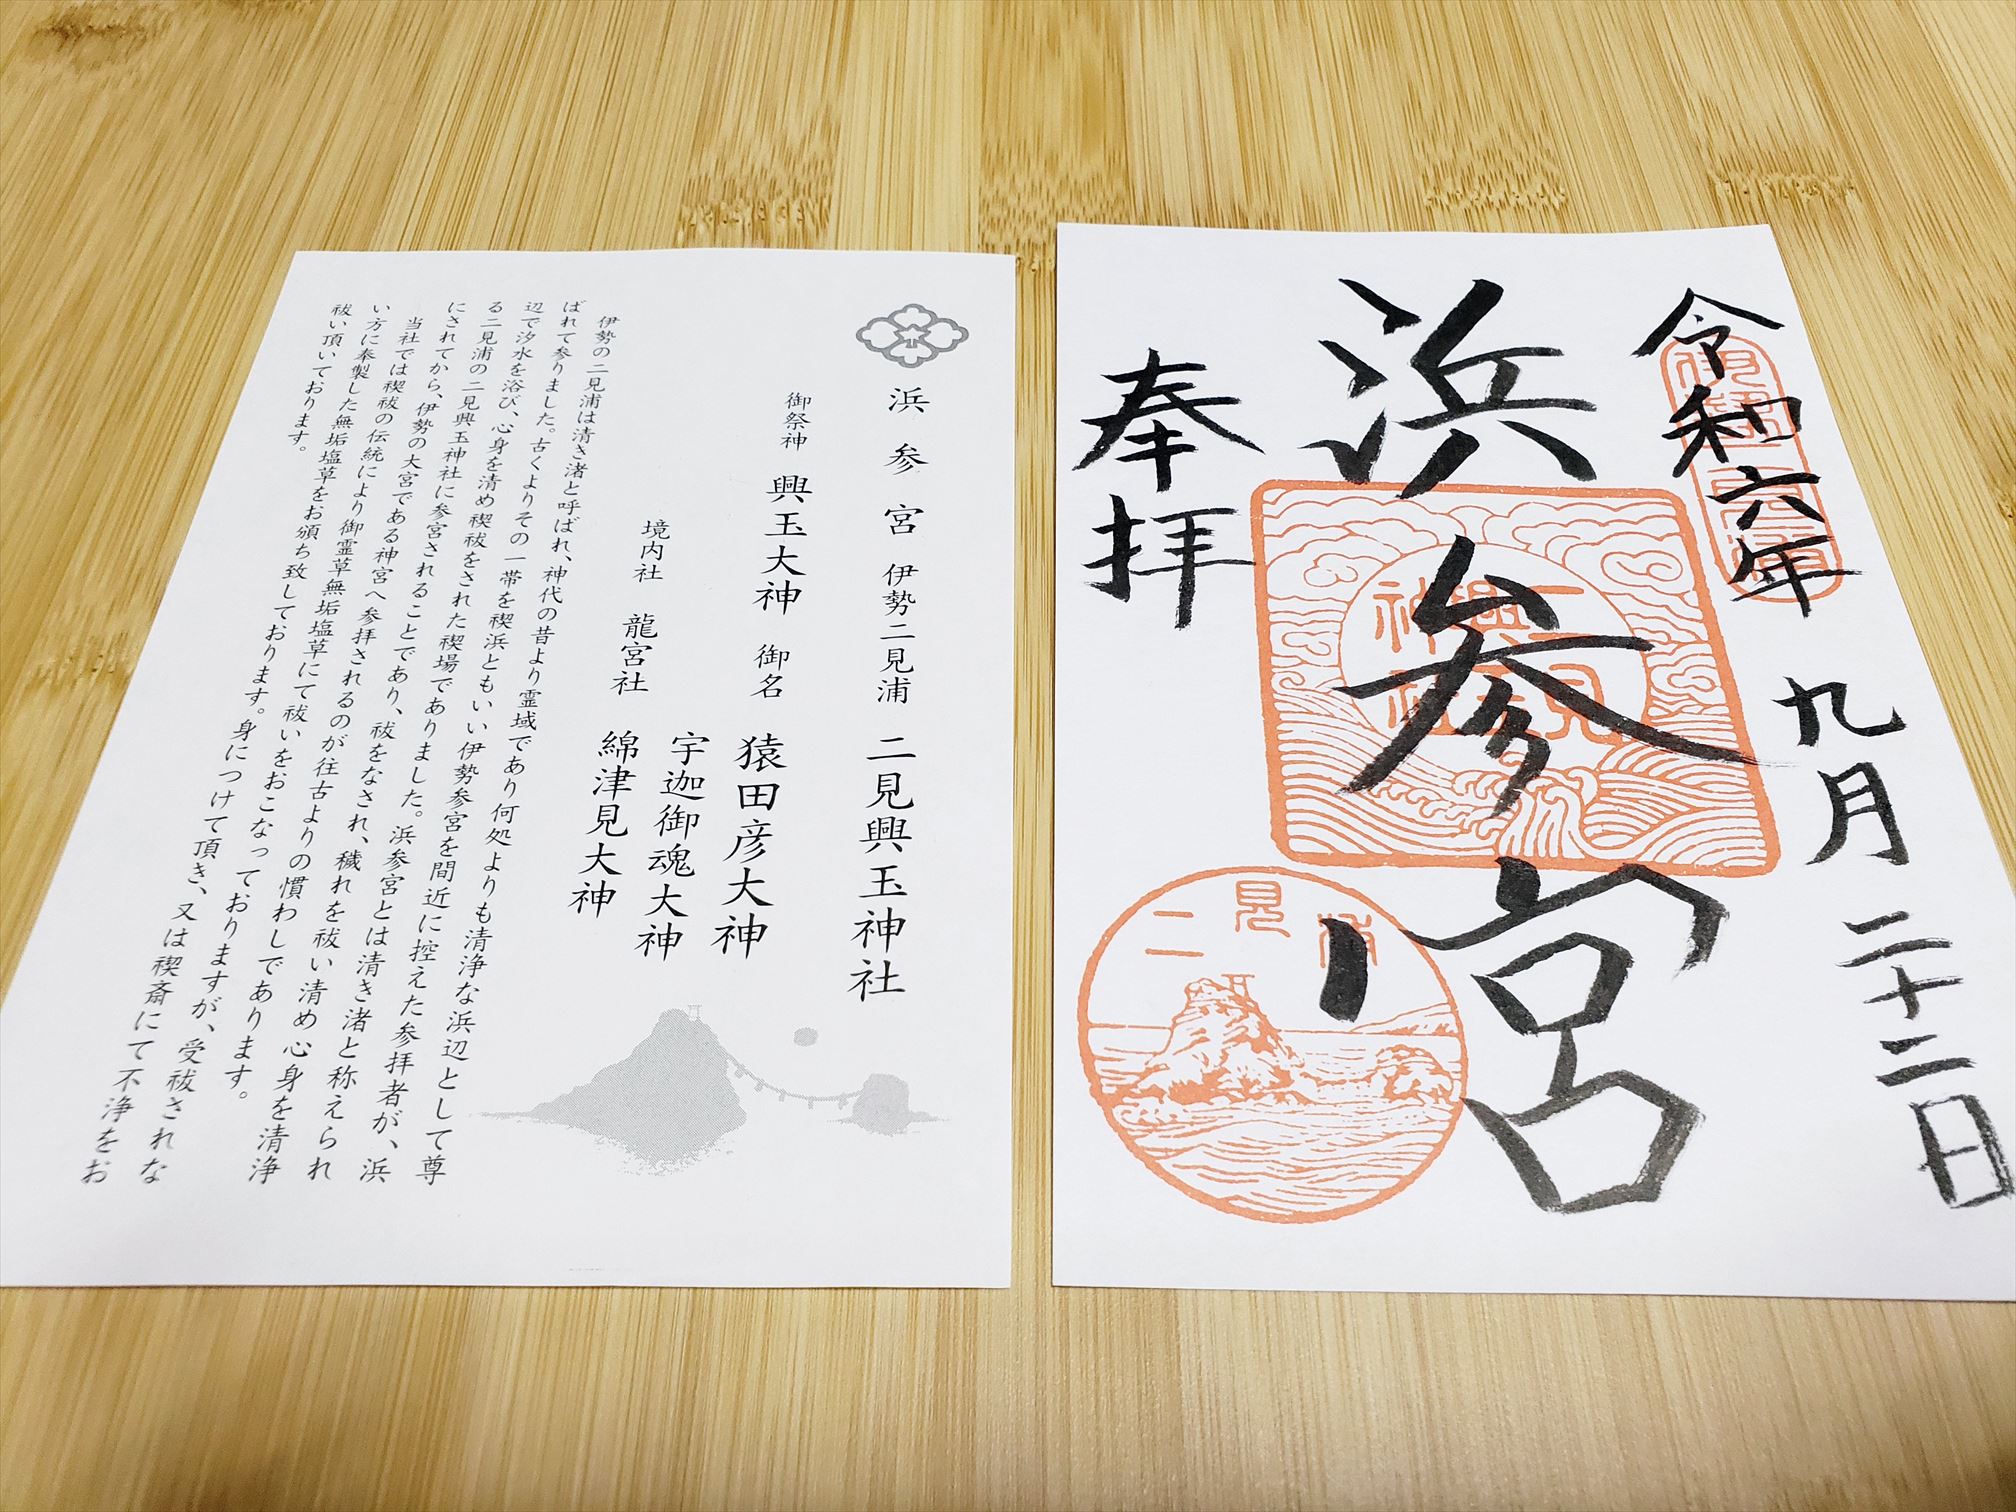 令和六年 九月二十二日
浜参宮
奉拝
二見興玉神社
二見浦
浜参宮 伊勢二見浦 二見興玉神社
御祭神 興玉大神 御名 猿田彦大神
宇迦御魂大神
境内社 龍宮社 綿津見大神
伊勢の二見浦は清き渚と呼ばれ、神代の昔より霊域であり何処よりも清浄な浜辺として尊
ばれて参りました。古くよりその一帯を禊浜ともいい伊勢参宮を間近に控えた参拝者が、浜
辺で汐水を浴び、心身を清め禊祓をされた禊場でありました。浜参宮とは清き渚と称えられ
る二見浦の二見興玉神社に参宮されることであり、祓をなされ、穢れを祓い清め心身を清浄
にされてから、伊勢の大宮である神宮へ参拝されるのが往古よりの慣わしであります。
当社では禊祓の伝統により御霊草無垢塩草にて祓いをおこなっておりますが、受祓されな
い方に奉製した無垢塩草をお頒ち致しております。身につけて頂き、又は禊斎にて不浄をお
祓い頂いております。